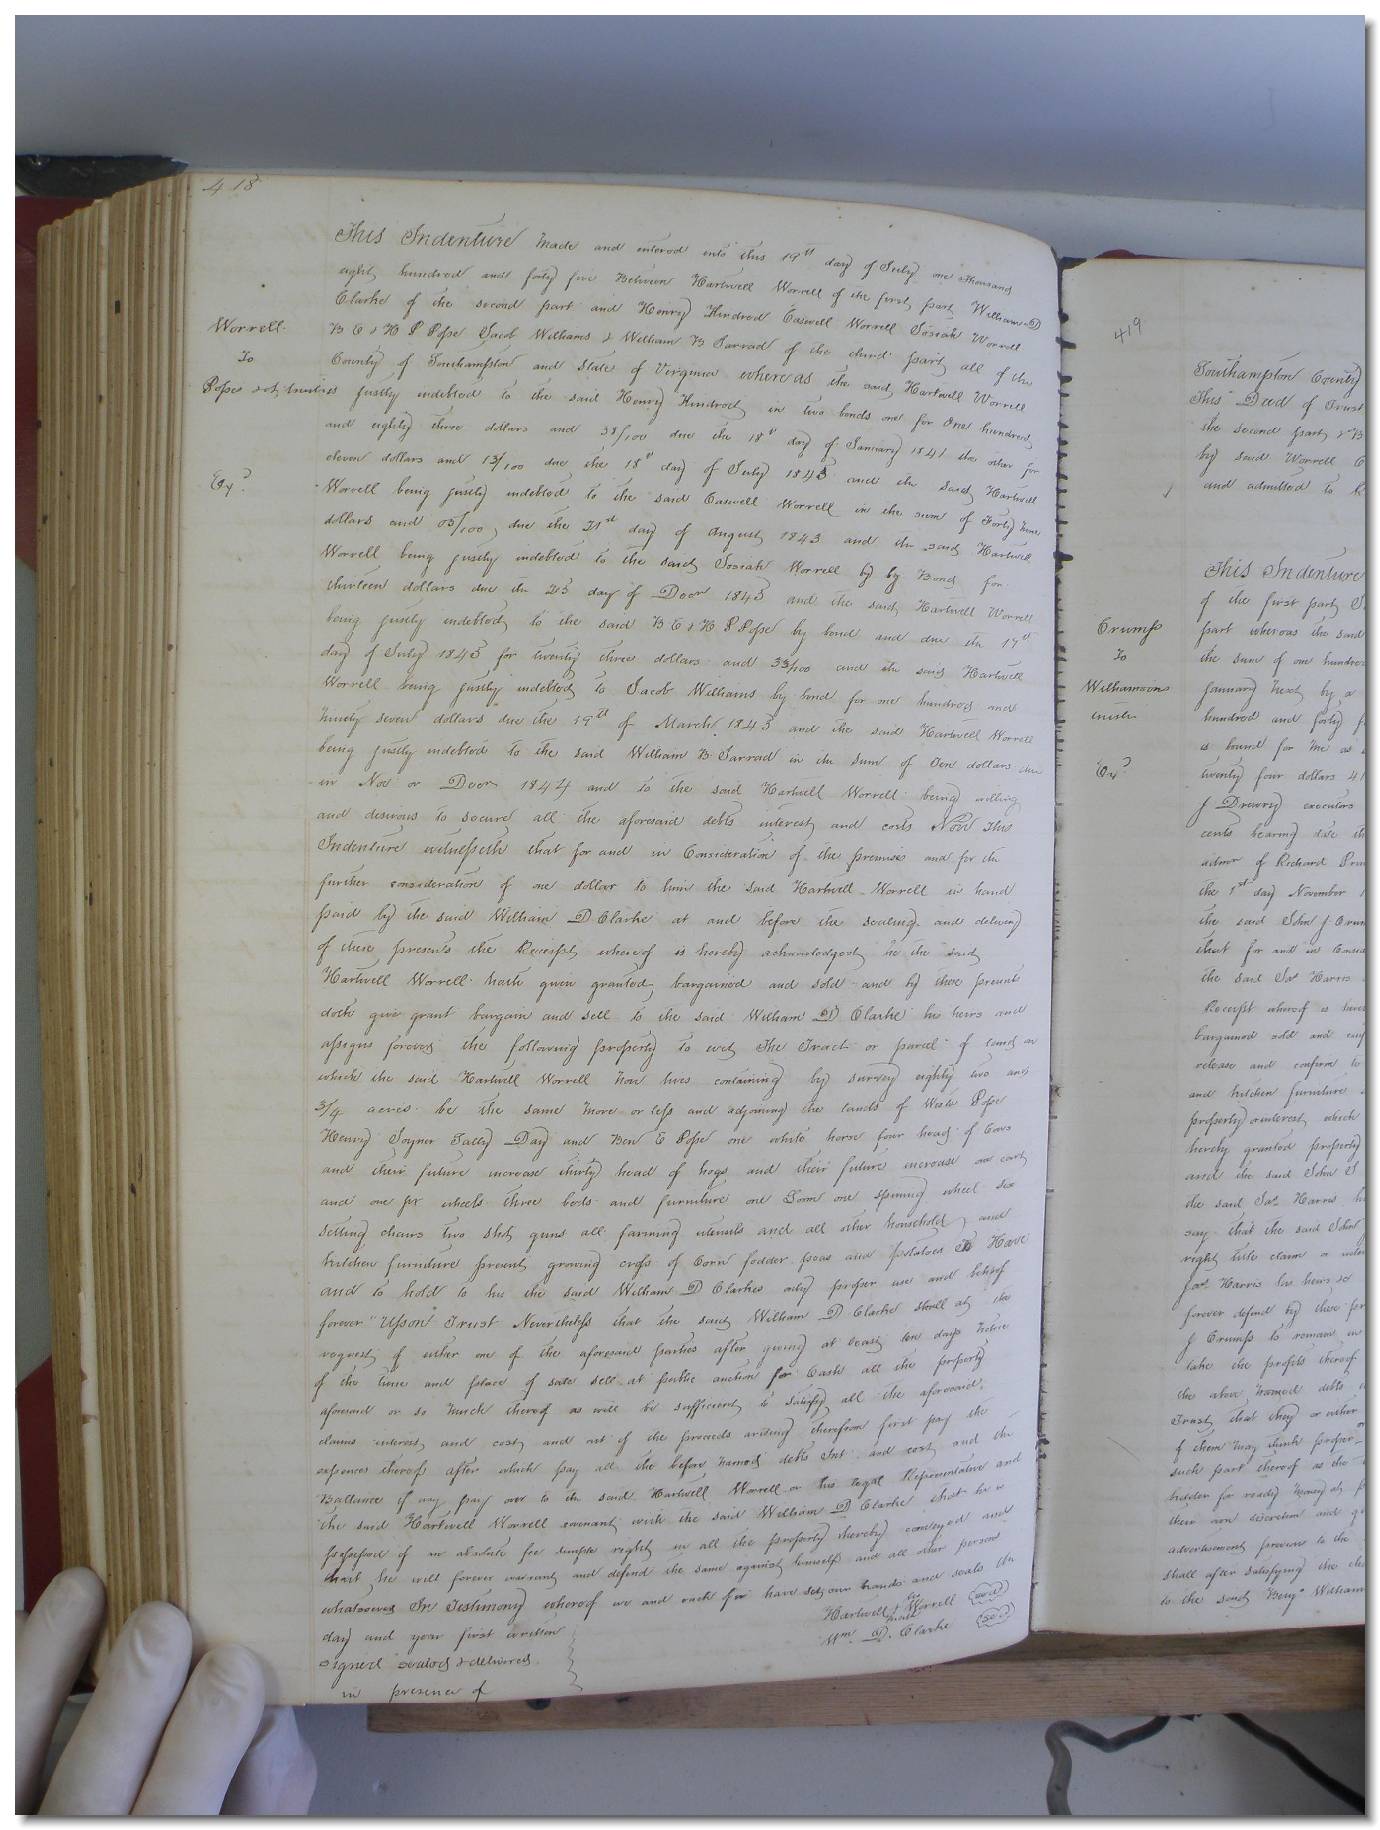 418
This Indenture made and entered into this 19th day of July one thousand
eight hundred and forty five Between Hartwell Worrell of the first part William D
Clarke of the second part and Henry Hindred Caswell Worrell Josiah Worrell
B E & H P Pope Jacob Williams & William B Jarrad of the third part all of the
County of Southampton and State of Virginia whereas the said Hartwell Worrell
justly indebted to the said Henry Hindred in two bonds one for One hundred
and eighty three dollars and 38/100 due the 18th day of January 1841 the other for
eleven dollars and 13/100 due the 18th day of July 1843 and the said Hartwell
Worrell being justly indebted to the said Caswell Worrell in the sum of Forty
dollars and 05/100 due the 21st day of August 1843 and the said Hartwell
Worrell being justly indebted to the said Josiah Worrell by by Bond for
thirteen dollars due the 25 day of Decr 1843 and the said Hartwell Worrell
being justly indebted to the said B E & H P Pope by bond and due the 17th
day of July 1843 for twenty three dollars and 33/100 and the said Hartwell
Worrell being justly indebted to Jacob Williams by bond for one hundred and
ninety seven dollars due the 19th of March 1843 and the said Hartwell Worrell
being justly indebted to the said William B Jarrad in the sum of Ten dollars due
in Nov or Decr 1844 and to the said Hartwell Worrell being willing
and desirous to secure all the aforesaid debts interest and costs Now This
Indenture witnesseth that for and in Consideration of the premises and for the
further consideration of one dollar to him the said Hartwell Worrell in hand
paid by the said William D Clarke at and before the sealing and delivery
of these presents the Receipt whereof is hereby acknowledged he the said
Hartwell Worrell hath given granted bargained and sold and by these presents
doth give grant bargain and sell to the said William D Clarke his heirs and
assigns forever the following property to wit The Tract or parcel of land on
which the said Hartwell Worrell now lives containing by survey eighty two and
3/4 acres be the same more or less and adjoining the lands of Pope
Henry Joyner Sally Day and Ben E Pope one white horse four head of Cows
and their future increase thirty head of hogs and their future increase one cart
and one pr wheels three beds and furniture one Loom one spining wheel six
setting chairs two shot guns all farming utensils and all other household and
kitchen furniture present growing crops of Corn fodder peas and potatoes To Have
and to hold to his the said William D Clarkes only proper use and behoof
forever "Upon" Trust Nevertheless that the said William D Clarke shall at the
request of either one of the aforesaid parties after giving at least ten days notice
of the time and place of sale sell at public auction for Cash all the property
aforesaid or so much thereof as will be sufficient to satisfy all the aforesaid
claims interest and cost and out of the proceeds arising therefrom first pay the
expences thereof after which pay all the before named debts Int and cost and the
Ballance if any pay over to the said Hartwell Worrell or his legal Representative and
the said Hartwell Worrell covenant with the said William D Clarke that he is
possessed of an absolute fee simple right in all the property thereby conveyed and
that he will forever warrant and defend the same against himself and all other persons
whatsoever In Testimony whereof we and each for have set our hands and seals the
day and year first written
Hartwell x Worrell seal
his
mark
Wm D. Clarke seal
signed sealed & delivered
in presence of
Worrell
To
Popes
Ex.d
419
Southampton County
This Deed of Trust
the second part & B
by said Worrell
and admitted to
This Indenture
of the first part
part whereas the said
the sum of one hundred
January next by a
hundred and forty
is bound for me as
twenty four dollars 41
J Drewry executors
cents bearing date
admr of Richard
the 1st day November
the said John J Crump
that for and in
the said Jas Harris
Receipt whereof is
bargained sold and
release and confirm to
and kitchen furniture
property or interest which
hereby granted property
and the said John J
the said Jas Harris
say that the said John
right title claim or
Jas Harris his heirs
forever defend by these
J Crump to remain in
take the profits thereof
the above named debts
Trust that they or either
of them may think proper
such part thereof as the
bidder for ready money at
their own discretion and
advertisement previous to the
shall after satisfying the
to the said Benj William
Crump
To
Williamsons
Ex.d